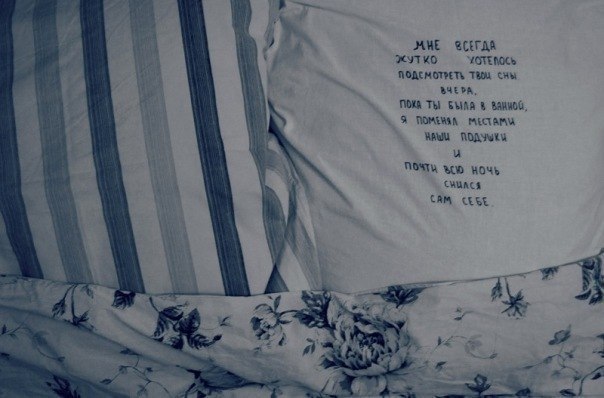 МНЕ ВСЕГДА
ЖУТКО ХОТЕЛОСЬ
ПОДСМОТРЕТЬ ТВОИ СНЫ
ВЧЕРА,
ПОКА ТЫ БЫЛА В ВАННОЙ,
Я ПОМЕНЯЛ МЕСТАМИ
НАШИ ПОДУШКИ
И
ПОЧТИ ВСЮ НОЧЬ
СНИЛСЯ
САМ СЕБЕ.